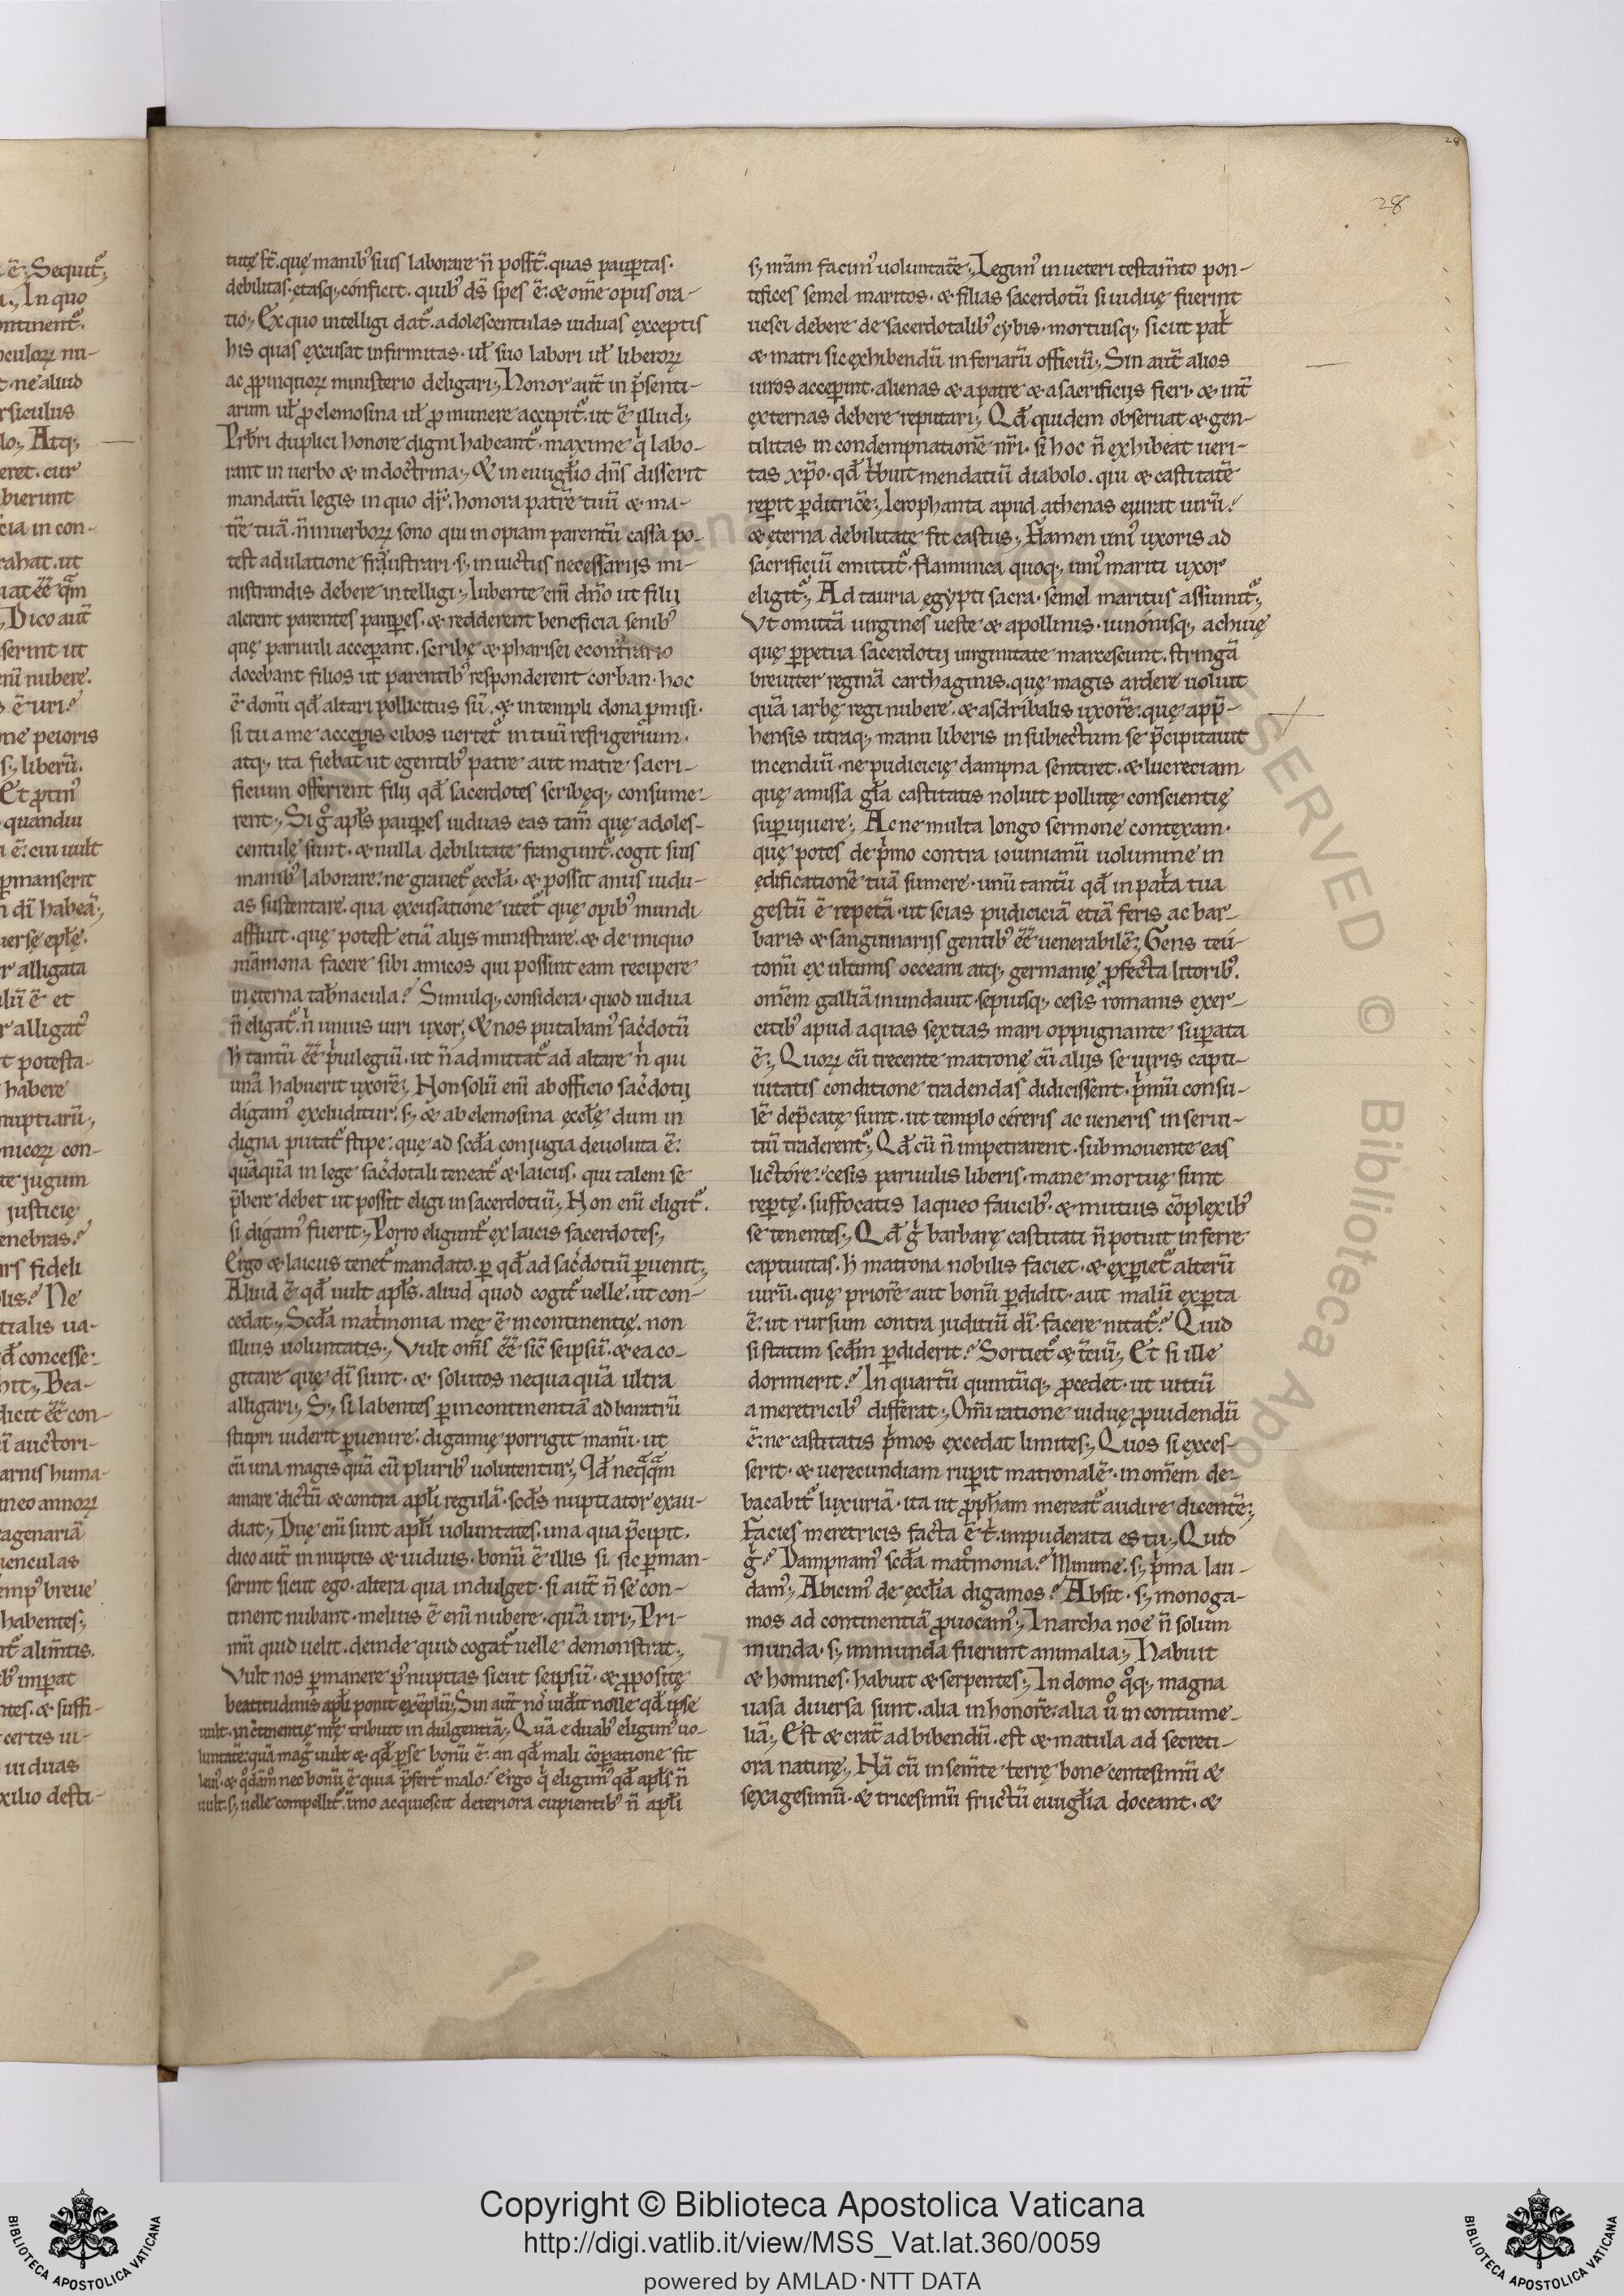 28
28
tutę st̄. quę manibꝰ suis laborare n̄ posst̄. quas pauꝑtas.
debilitas. etasq; conficit. quibꝰ ds̄ spes ē. & om̄e opus ora-
tio; Ex quo intelligi dat᷑. adolescentulas uiduas exceptis
his quas excusat infirmitas. ul̄ suo labori ul̄ liberoꝝ
ac ꝓpinquioꝝ ministerio deligari; Honor aut̄ in p̄senti-
arum ul̄ ꝓ elemosina ul̄ ꝓ munere accipit᷑. ut ē illud;
Prb̄ri duplici honore digni habeant᷑. maxime q̍ labo-
rant in uerbo & in doctrina; & in euuḡlio dn̄s disserit
mandatū legis in quo dr̄. honora patrē tuū & ma-
trē tuā. n̄ in uerboꝝ sono qui inopiam parentū cassa po-
test adulatione frąustrari. s; in uictus necessariis mi-
nistrandis debere intelligi; Iubente em̄ dn̄o ut filii
alerent parentes pauꝑes. & redderent beneficia senibꝰ
quę paruuli acceꝑant. scribę & pharisei econtrario
docebant filios ut parentibꝰ responderent corban. hoc
ē donū qd̄ altari pollicitus sū. & in templi dona ꝑmisi.
si tu a me acceꝑis cibos uertet᷑ in tuū refrigerium.
atq; ita fiebat ut egentibꝰ patre aut matre sacri-
ficium offerrent filii qd̄ sacerdotes scribęq; consume-
rent; Si g° apl̄s pauꝑes uiduas eas tam̄ quę adoles-
centulę sunt. & nulla debilitate frangunt᷑. cogit suis
manibꝰ laborare. ne grauet᷑ ęccl̄a. & possit anus uidu-
as sustentare. qua excusatione utet᷑ quę opibꝰ mundi
affluit. quę potest etiā aliis ministrare. & de iniquo
māmona facere sibi amicos qui possint eam recipere
in ęterna tab̄nacula? Simulq; considera. quod uidua
n̄ eligat᷑. n̍ unius uiri uxor; & nos putabamꝰ sac̄dotū
h̄ tantū ēē p̍uilegiū. ut n̄ admittat᷑ ad altare n̍ qui
unā habuerit uxorē; Non solū em̄ ab officio sac̄dotii
digamꝰ excluditur. s; & ab elemosina ęccl̄ę dum in
digna putat᷑ stipe. quę ad scd̄a conjugia deuoluta ē.
quāquā in lege sac̄dotali teneat᷑ & laicus. qui talem se
p̄bere debet ut possit eligi in sacerdotiū; Non em̄ eligit᷑.
si digamꝰ fuerit; Porro eligunt᷑ ex laicis sacerdotes;
Ergo & laicus tenet᷑ mandato. ꝑ qd̄ ad sac̄dotiū ꝑuenit;
Aliud ē qd̄ uult apl̄s. aliud quod cogit᷑ uelle. ut con-
cedat; Scd̄a mat̍monia meę ē incontinentię. non
illius uoluntatis; Vult om̄s ēē sic̄ seipsū. & ea co-
gitare quę dī sunt. & solutos nequaquā ultra
alligari; S; si labentes ꝑ incontinentiā ad baratrū
stupri uiderit ꝑuenire. digamię porrigit manū. ut
cū una magis quā cū pluribꝰ uolutentur; Id̄ neqq̄m
amare dictū & contra apl̄i regulā. scd̄s nuptiator exau-
diat; Duę em̄ sunt apl̄i uoluntates. una qua p̄cipit.
dico aut̄ innuptis & uiduis. bonū ē illis si sic ꝑman-
serint sicut ego. altera qua indulget. si aut̄ n̄ se con-
tinent nubant. melius ē em̄ nubere. quā uri; Pri-
mū quid uelit. deinde quid cogat᷑ uelle demonstrat;
Vult nos ꝑmanere pꝰ nuptias sicut seipsū. & ꝓpositę
beatitudinis apl̄i ponit exēplū; Sin aut̄ nos uid̄it nolle qd̄ ipse
uult. incōtinentię nr̄ę tribuit indulgentiā; Quā e duabꝰ eligimꝰ uo-
luntatē. quā mag̍ uult & qd̄ ꝑ se bonū ē. an qd̄ mali cōparatione fit
leuiꝰ. & q°dām° nec bonū ē quia p̄fert᷑ malo? Ergo q̍ eligimꝰ qd̄ apl̄s n̄
uult. s; uelle compellit᷑. īmo acquiescit deteriora cupientibꝰ n̄ apl̄i
s; nr̄am facimꝰ uoluntatē; Legimꝰ in ueteri testam̄to pon-
tifices semel maritos. & filias sacerdotū si uiduę fuerint
uesci debere de sacerdotalibꝰ cybis. mortuisq; sicut pat̄
& matri sic exhibendū inferiarū officiū; Sin aut̄ alios
uiros acceꝑint. alienas & a patre & a sacrificiis fieri. & int̄
externas debere reputari; Qd̄ quidem obseruat & gen-
tilitas in condempnationē nr̄i. si hoc n̄ exhibeat ueri-
tas xp̄o. qd̄ t̍buit mendatiū diabolo. qui & castitatē
reꝑit ꝑditricē; Ierophanta apud athenas eiurat uirū?
& ęterna debilitate fit castus; Flamen uniꝰ uxoris ad
sacrificiū emittit᷑. flaminica quoq; uniꝰ mariti uxor
eligit᷑; Ad tauria ęgypti sacra. semel maritus assumit᷑;
Vt omittā uirgines ueste & apollinis. iunonisq; achiuę
quę ꝑpetua sacerdotii uirginitate marcescunt. stringā
breuiter reginā carthaginis. quę magis ardere uoluit
quā iarbę regi nubere. & asdribalis uxorē. quę app̄-
hensis utraq; manu liberis in subiectum se p̄cipitauit
incendiū. ne pudicicię dampna sentiret. & lucreciam
quę amissa gl̄a castitatis noluit pollutę conscientię
suꝑuiuere; Ac ne multa longo sermone contexam.
quę potes de p̍mo contra iouinianū uolumine in
ędificationē tuā sumere. unū tantū qd̄ in pat̍a tua
gestū ē repetā. ut scias pudiciciā etiā feris ac bar-
baris & sanguinariis gentibꝰ ēē uenerabilē; Gens teu-
tonū ex ultimis occeani atq; germanię ꝓfecta litoribꝰ.
om̄em galliā inundauit. sepiusq; cesis romanis exer-
citibꝰ apud aquas sextias mari oppugnante suꝑata
ē; Quoꝝ cū trecente matronę cū aliis se uiris capti-
uitatis conditione tradendas didicissent. p̍mū consu-
lē dep̄catę sunt. ut templo cereris ac ueneris in serui-
tiū traderent᷑; Qd̄ cū n̄ impetrarent. submouente eas
lictore? cesis paruulis liberis. mane mortuę sunt
reꝑtę. suffocatis laqueo faucibꝰ. & mutuis cōplexibꝰ
se tenentes; Qd̄ g̍ barbarę castitati n̄ potuit inferre
captiuitas. h̄ matrona nobilis faciet. & exꝑiet᷑ alterū
uirū. quę priorē aut bonū ꝑdidit. aut malū exꝑta
ē. ut rursum contra juditiū dī. facere nitat᷑? Quid
si statim scd̄m ꝑdiderit? Sortiet᷑ & t̄ciū; Et si ille
dormierit? In quartū quintūq; ꝓcedet. ut uitiū
a meretricibꝰ differat; Om̄i ratione uiduę ꝓuidendū
ē. ne castitatis p̍mos excedat limites; Quos si exces-
serit. & uerecundiam ruꝑit matronalē. in om̄em de-
bacabit᷑ luxuriā. ita ut ꝓph̄am mereat᷑ audire dicentē;
Facies meretricis facta ē t̍. impuderata es tu; Quid
g̍? Dampnamꝰ scd̄a mat°monia? Minime. s; p̍ma lau-
damꝰ; Abicimꝰ de ęccl̄ia digamos? Absit. s; monoga-
mos ad continentiā ꝓuocamꝰ; In archa noe n̄ solum
munda. s; immunda fuerunt animalia; Habuit
& homines. habuit & serpentes; In domo q°q; magna
uasa diuersa sunt. alia in honorē. alia u° in contume-
liā; Est & crat̄ ad bibendū. est & matula ad secreti-
ora naturę; Nā cū in sem̄te terrę bone centesimū &
sexagesimū. & tricesimū fructū euuḡlia doceant. &
Copyright © Biblioteca Apostolica Vaticana
http://digi.vatlib.it/view/MSS_Vat.lat.360/0059
powered by AMLAD·NTT DATA